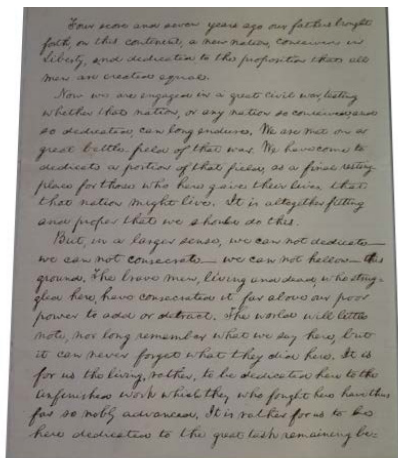 Four score and seven years ago our fathers brought
forth, on this continent, a new nation, conceived in
Liberty, and dedicated to the proposition that all
men are created equal.
Now we are engaged in a great civil war, testing
whether that nation, or any nation so conceived, and
so dedicated, can long endure. We are met on a
great battle field of that war. We have come to
dedicate a portion of that field, as a final resting
place for those who here gave their lives, that
that nation might live. It is altogether fitting
and proper that we should do this.
But, in a larger sense, we can not dedicate—
we can not consecrate—we can not hallow—this
ground. The brave men, living and dead, who strug-
gled here, have consecrated it far above our poor
power to add or detract. The world will little
note, nor long remember what we say here, but
it can never forget what they did here. It is
for us the living, rather, to be dedicated here to the
unfinished work which they who fought here have thus
far so nobly advanced. It is rather for us to be
here dedicated to the great task remaining be-